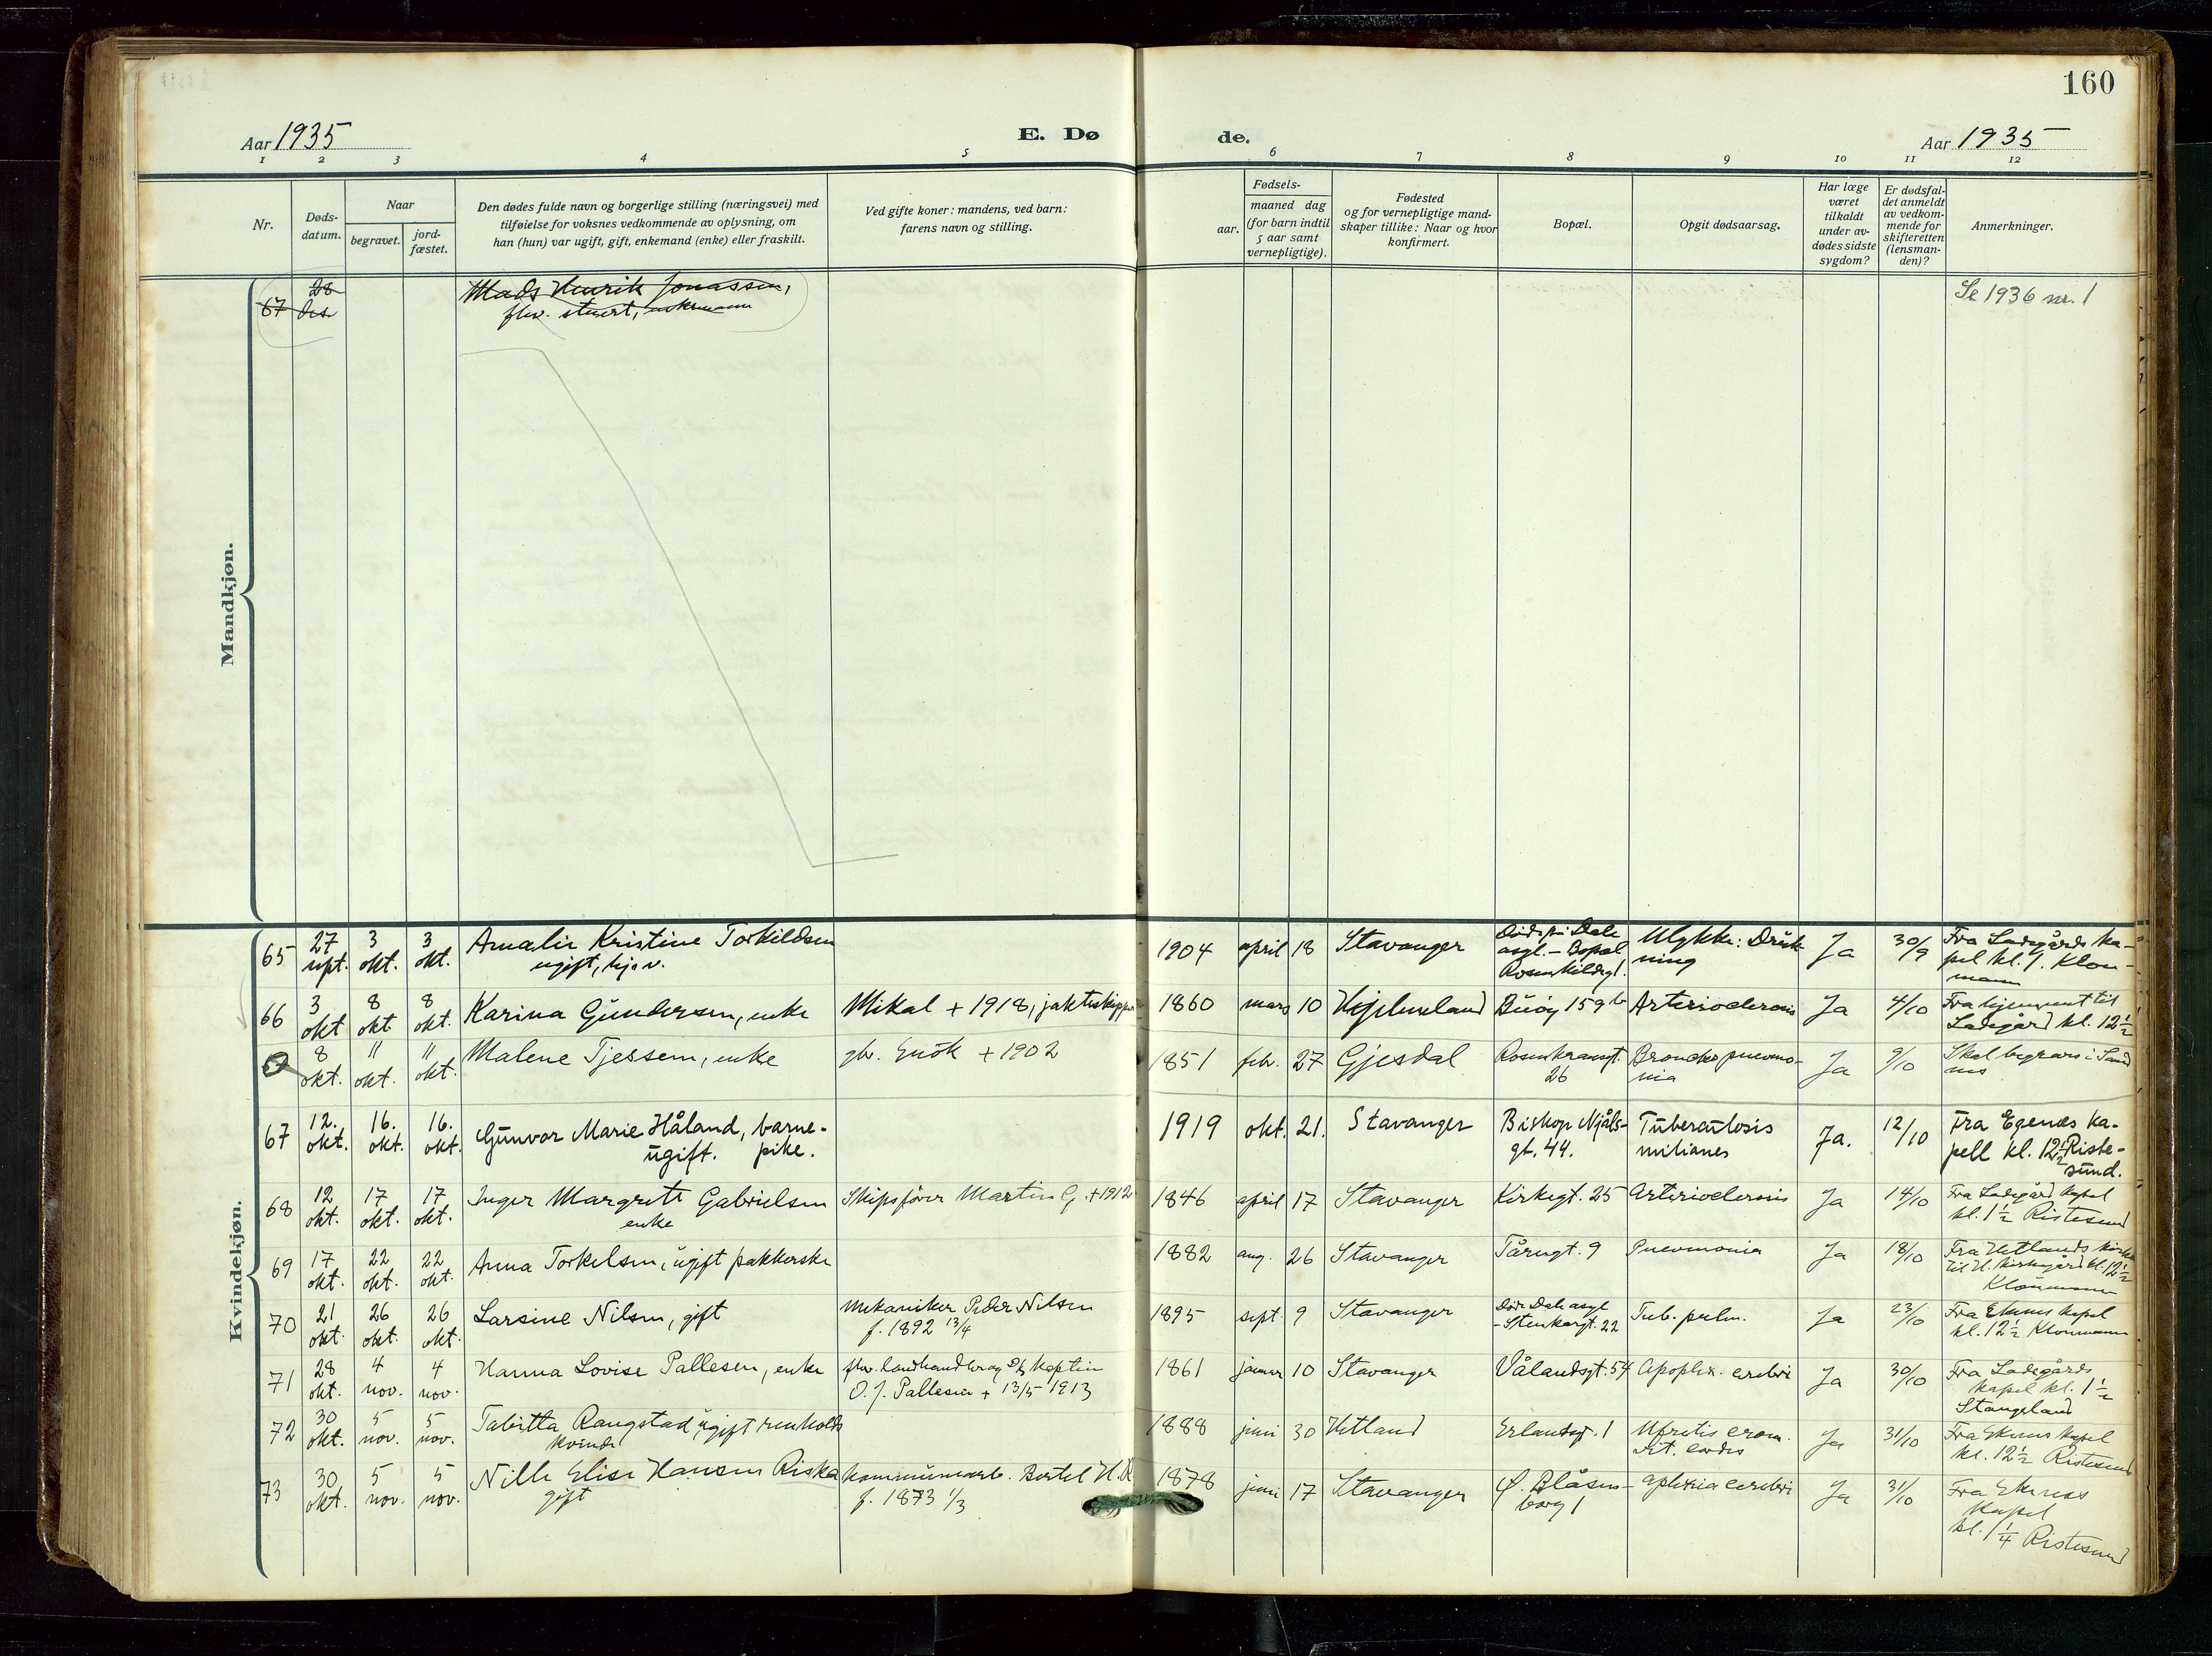 160
Aar 1935
E. Dø
de.
Aar 1935
1 2 3 4 5 6 7 8 9 10 11 12
Nr.
Døds-
datum.
Naar
begravet.
jord-
fæstet.
Den dødes fulde navn og borgerlige stilling (næringsvei) med
tilføielse for voksnes vedkommende av oplysning, om
han (hun) var ugift, gift, enkemand (enke) eller fraskilt.
Ved gifte koner: mandens, ved barn:
farens navn og stilling.
aar.
Fødsels-
maaned dag
(for barn indtil
5 aar samt
vernepligtige).
Fødested
og for vernepligtige mand-
skaper tillike: Naar og hvor
konfirmert.
Bopæl.
Opgit dødsaarsag.
Har læge
været
tilkaldt
under av-
dødes sidste
sygdom?
Er dødsfal-
det anmeldt
av vedkom-
mende for
skifteretten
(lensman-
den)?
Anmerkninger.
Mandkjøn.
67 28 des. Mads Henrik Jonassen, Se 1936 nr. 1
flv. stuert, enkemann
Kvindekjøn.
65 27 sept. 3 okt. 3 okt. Amalie Kristine Torkildsen
ugift, hjv.
1904 april 18 Stavanger
Død på Dale
asyl. – Bopæl
Rosenkildegt.
Ulykke: Druk-
ning
Ja 30/9
Fra Ladegårds ka-
pel kl. 1. Klou-
mann
66 3 okt 8 okt 8 okt. Karina Gundersen, enke
Mikal + 1918, jakteskipper
1860 mars 10 Hjelmeland Buøy 159b Arteriosclerosis Ja 4/10
Fra hjemmet til
Ladegård kl. 12½
8 okt. 11 okt. 11 okt. Malene Tjessem, enke
gbr. Enok + 1902
1851 febr. 27 Gjesdal
Rosenkransgt.
26
Bronchopneumo-
nia
Ja 9/10
Skal begraves i Sand
nes
67 12. okt. 16. okt. 16. okt. Gunvor Marie Håland, barne-
ugift. pike.
1919 okt. 21. Stavanger
Biskop Njåls-
gt. 44.
Tuberculosis
miliares
Ja. 12/10
Fra Egenes ka-
pell kl. 12½ Riste-
sund.
68 12 okt. 17 okt. 17 okt. Inger Margrete Gabrielsen
enke
Skipsfører Martin G. + 1912
1846 april 17 Stavanger Kirkegt. 25 Arteriosclerosis Ja 14/10
Fra Ladegård kapel
kl. 1½ Ristesund
69 17 okt. 22 okt. 22 okt. Anna Torkelsen, ugift pakkerske
1882 aug. 26 Stavanger Tårngt. 9 Pneumonia Ja 18/10
Fra Hetlands kirke
til H. kirkegård kl. 12½
Kloumann
70 21 okt. 26 okt. 26 okt. Larsine Nilsen, gift
Mekaniker Peder Nilsen
f. 1892 13/4
1895 sept. 9 Stavanger
Død Dale asyl
- Stenkargt. 22
Tub. pulm. Ja 23/10
Fra Ekenes kapel
kl. 12½ Kloumann
71 28 okt. 4 nov. 4 nov. Hanna Lovise Pallesen, enke
flv. landhandler og D/S kaptein
O. J. Pallesen + 13/5 1913
1861 januar 10 Stavanger Vålandsgt. 54 Apoplex. cerebri Ja 30/10
Fra Ladegårds
kapel kl. 1½
Stangeland
72 30 okt. 5 nov. 5 nov. Tabitta Rangstad, ugift renholds
kvinde
1888 juni 30 Hetland Erlandsgt. 1
Nefritis cron.
Vit. cordis
Ja 31/10
Fra Ekenes kapel
kl. 12½ Ristesund
73 30 okt. 5 nov. 5 nov. Nille Elise Hansen Riska
gift
Kommunearb. Bertel H. R
f. 1873 1/3
1878 juni 17 Stavanger
Ø. Blåsen-
borg 1
aplexia cerebri Ja 31/10
Fra Ekeness
kapel
kl. 1¼ Ristesund